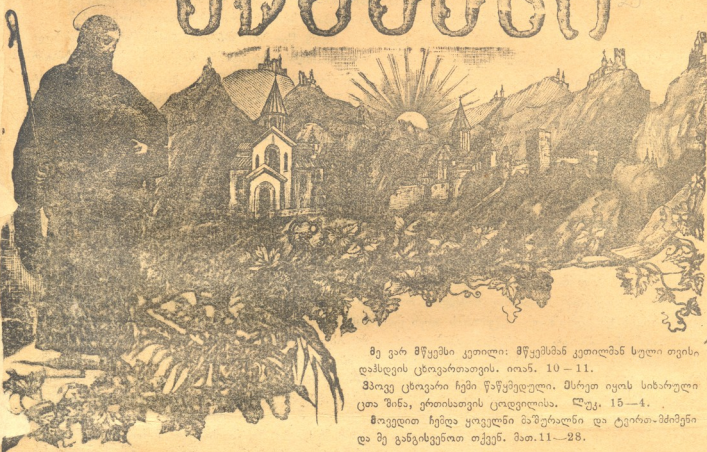 მე ვარ მწყემსი კეთილი: მწყემსმან კეთილმან სული თვისი
დაჰსდვის ცხოვართათვის. იოან. 10—11.
ჰპოვე ცხოვარი ჩემი წაწყმედული. ესრეთ იყოს სიხარული
ცთა შინა, ერთისათვის ცოდვილისა. ლუკ. 15—4.
მოვედით ჩემდა ყოველნი მაშურალნი და ტვირთ-მძიმენი
და მე განგისვენოთ თქვენ. მათ. 11—28.